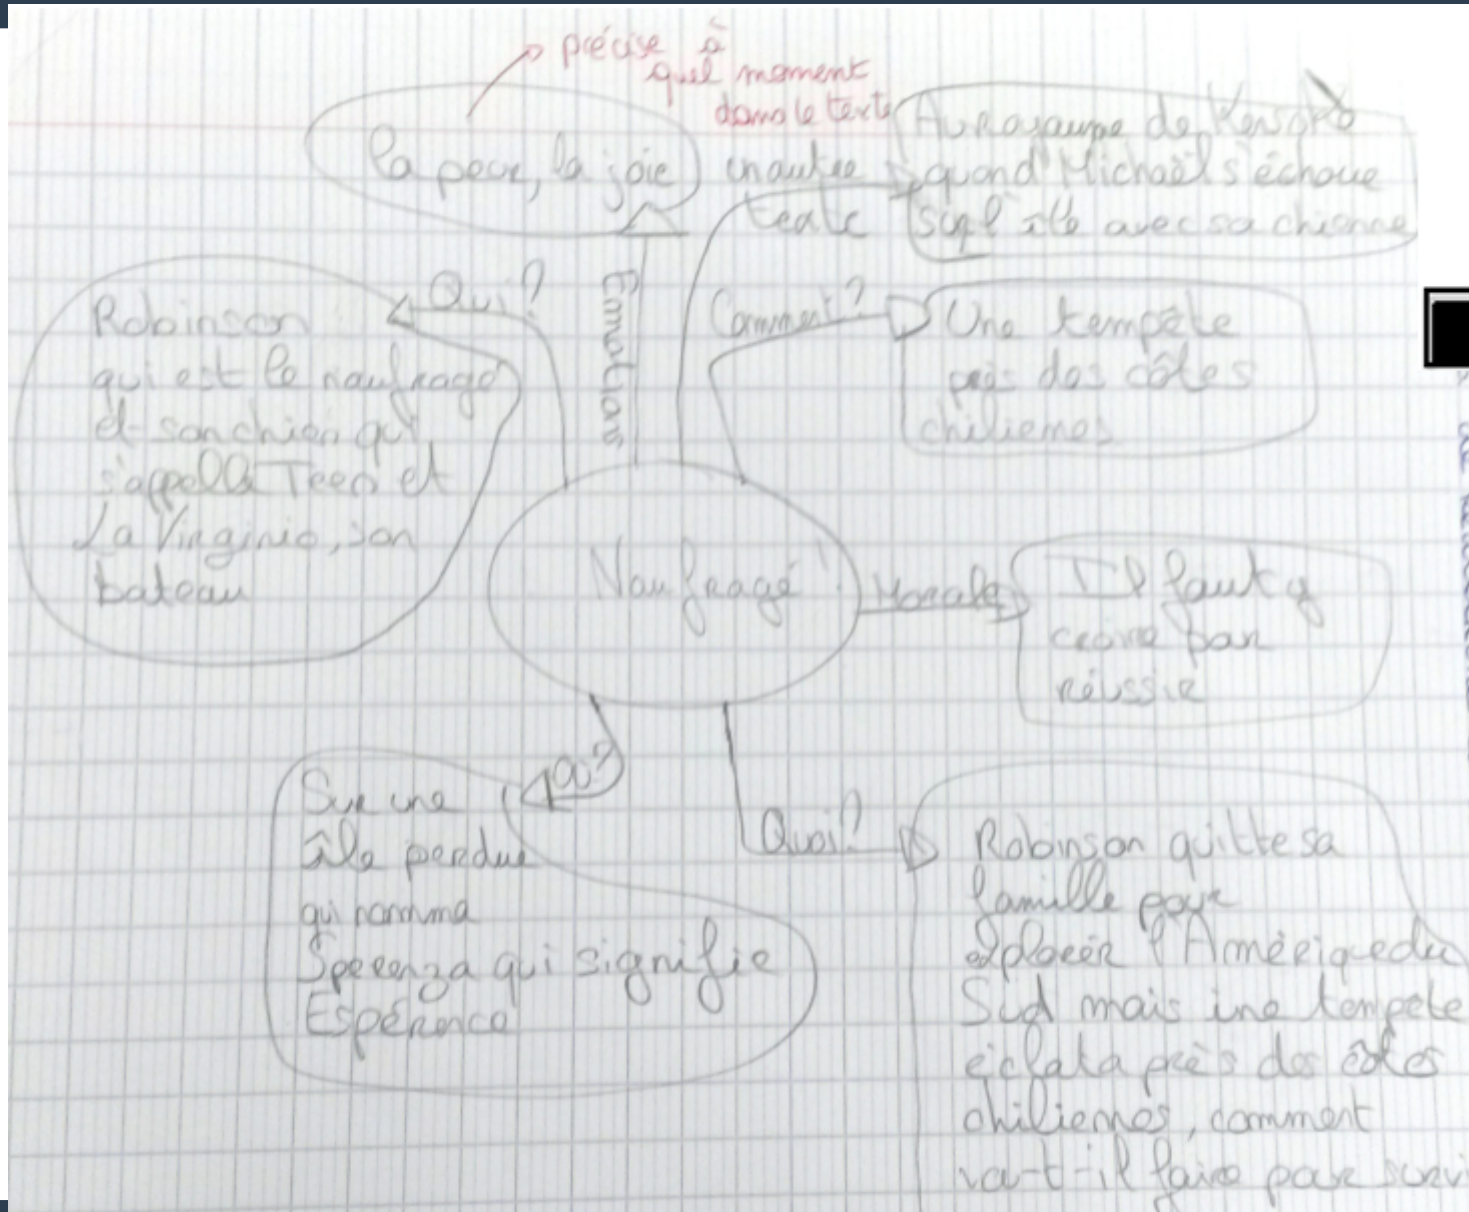 précise à
quel moment
dans le texte
la peur, la joie
un autre
texte
Au Royaume de Kensuké
quand Michaël s'échoue
sur l'île avec sa chienne
Émotions
Qui?
Robinson
qui est le naufragé
et son chien qui
s'appella Teen et
La Virginie, son
bateau
Comment?
Une tempête
près des côtes
chiliennes
Naufragé
Morale
Il faut y
croire pour
réussir
Où?
Sur une
île perdue
qui nomma
Sperenza qui signifie
Espérence
Quoi?
Robinson quitte sa
famille pour
explorer l'Amérique du
Sud mais une tempête
éclata près des côtes
chiliennes, comment
va-t-il faire pour survi